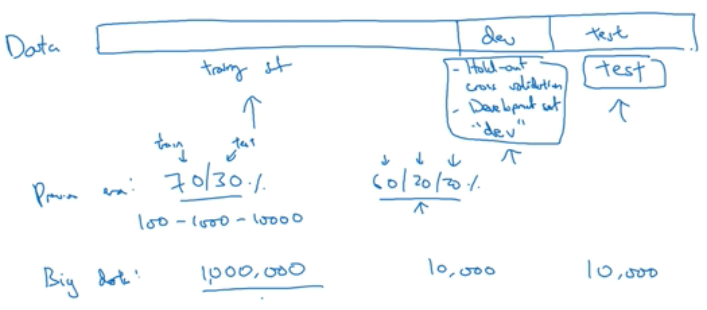 Data
dev
test
training set
- Hold-out
cross validation
- Development set
"dev"
test
train test
Previous era: 70/30 %
60/20/20 %
100 - 1000 - 10000
Big data: 1,000,000 10,000 10,000